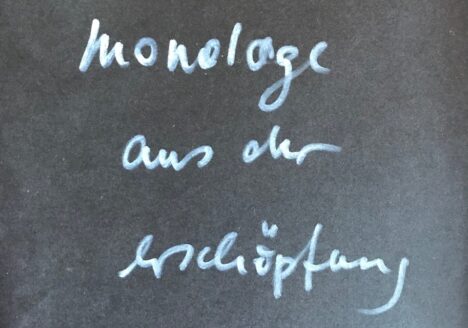 monologe
aus der
erschöpfung